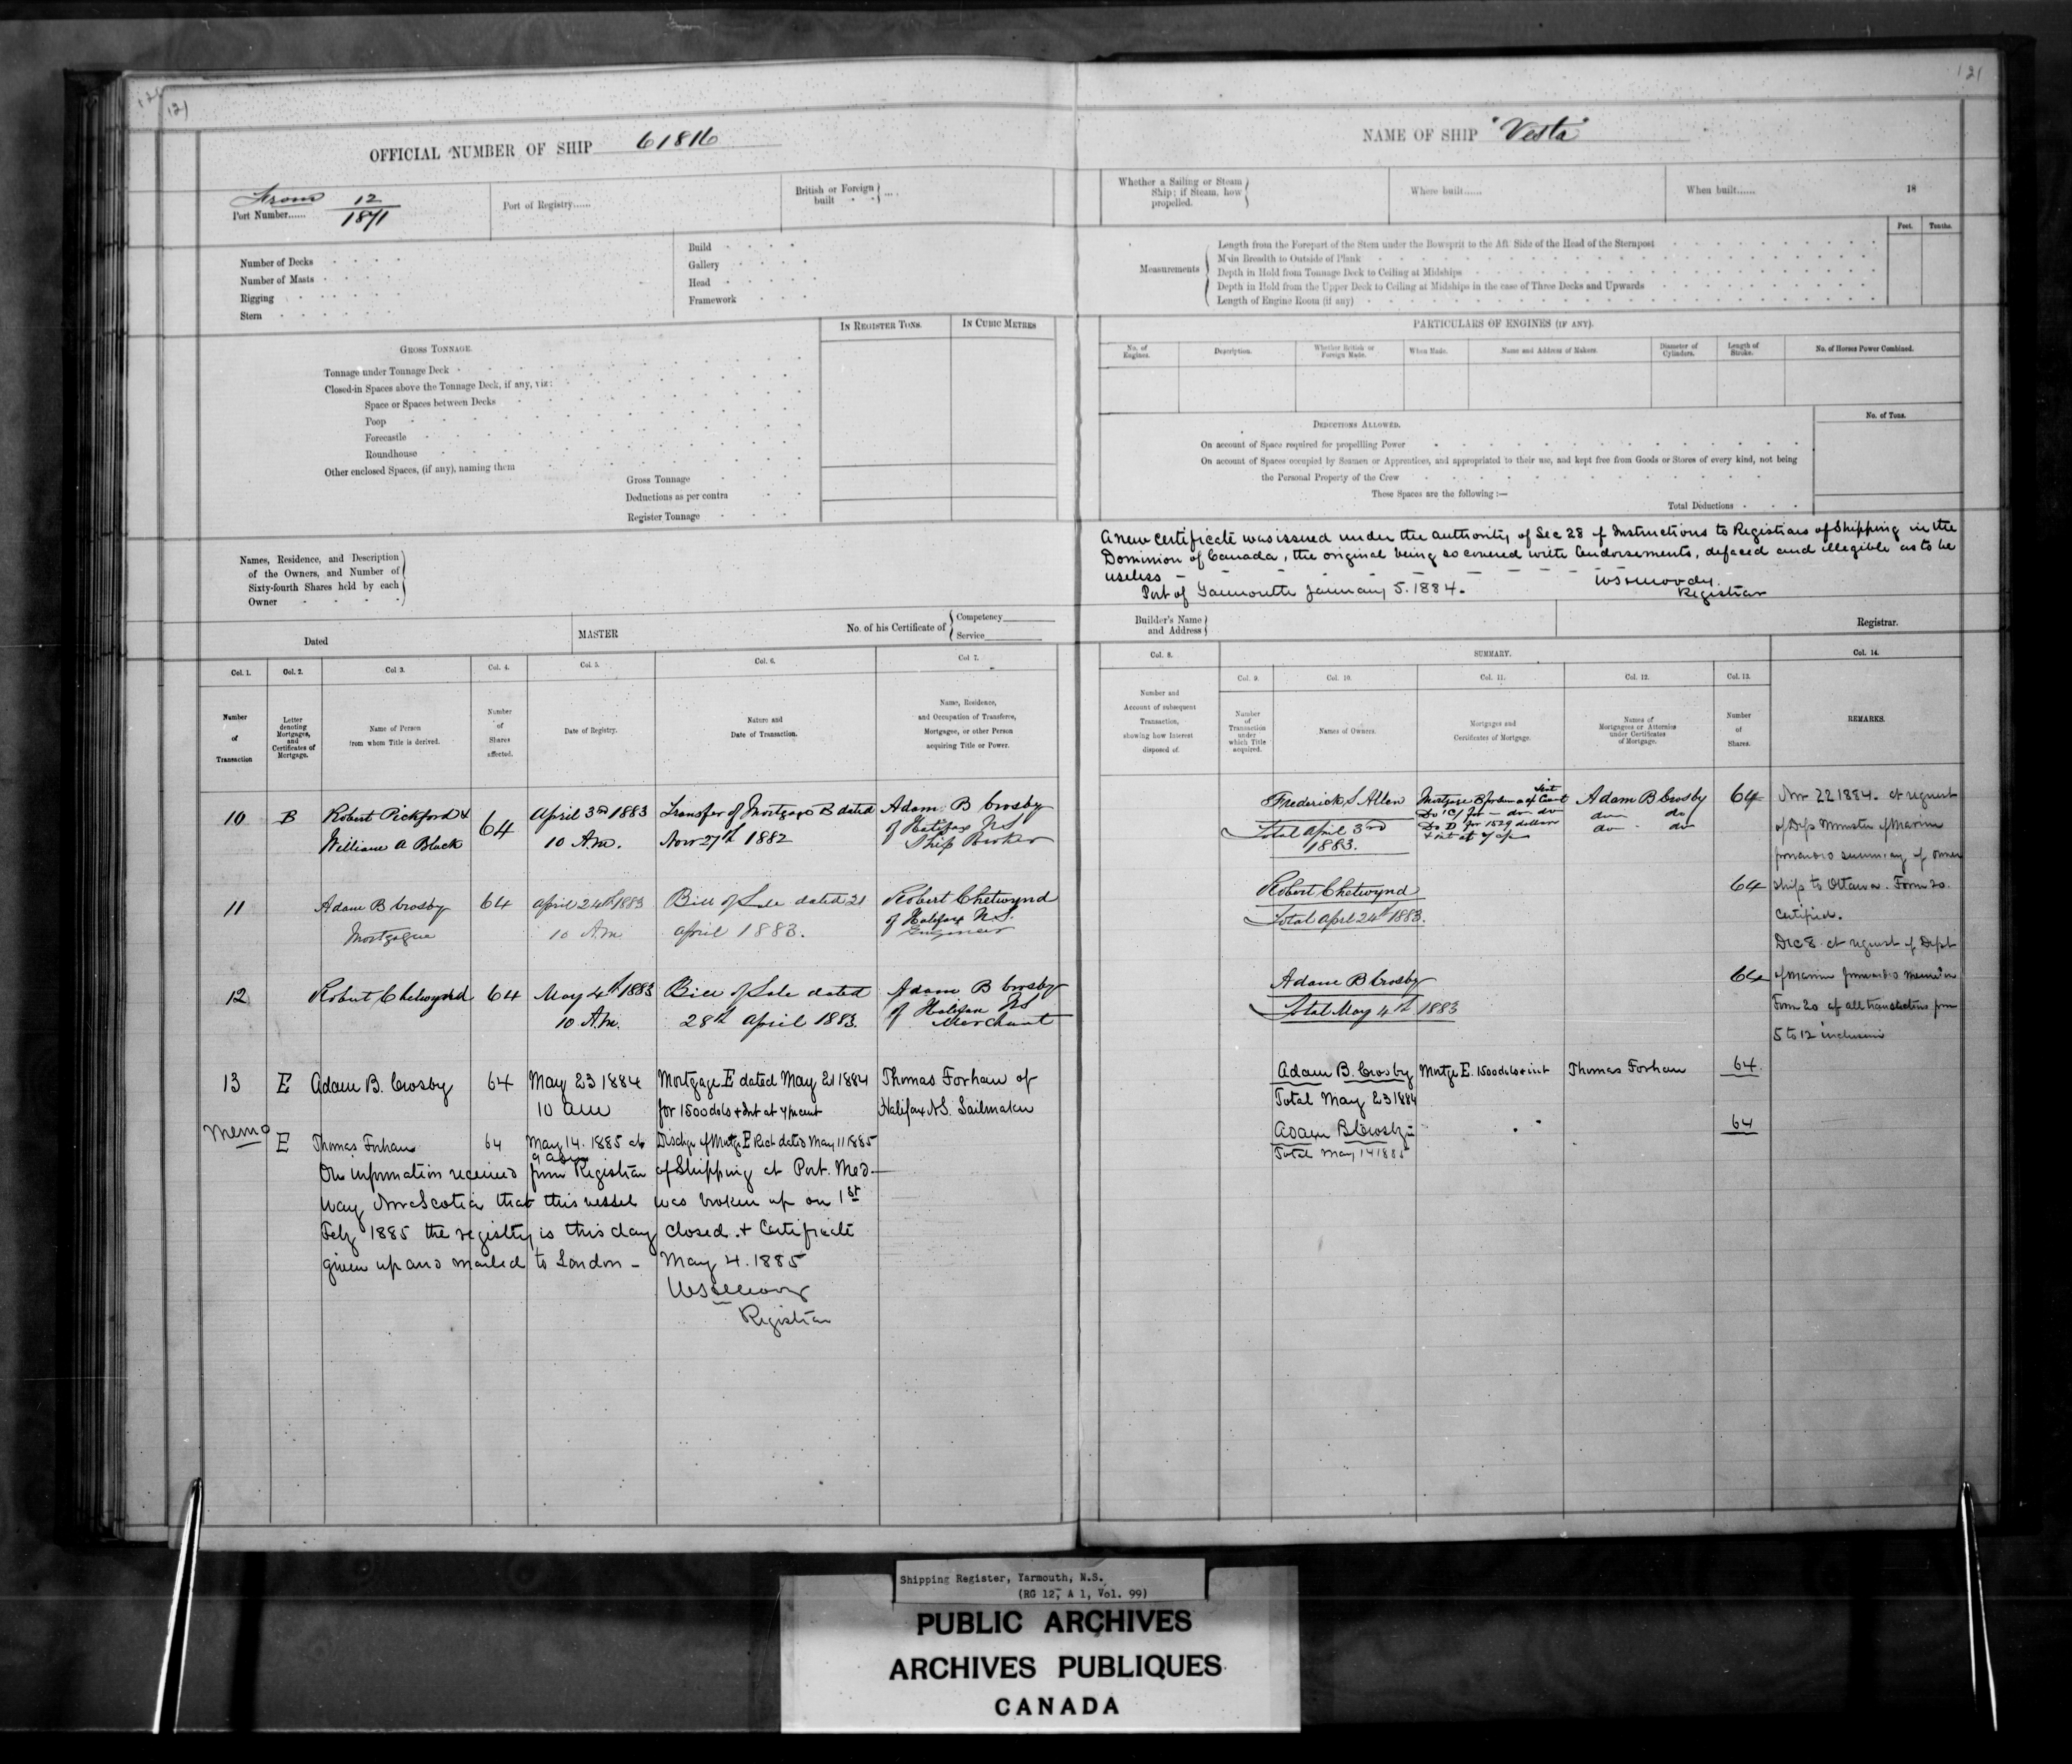 121
OFFICIAL NUMBER OF SHIP 61816
From 12
Port Number...... 1871
Port of Registry......
British or Foreign
built
Number of Decks
Number of Masts
Rigging
Stern
Build
Gallery
Head
Framework
IN REGISTER TONS.
IN CUBIC METRES
GROSS TONNAGE.
Tonnage under Tonnage Deck
Closed-in Spaces above the Tonnage Deck, if any, viz:
Space or Spaces between Decks
Poop
Forecastle
Roundhouse
Other enclosed Spaces, (if any), naming them
Gross Tonnage
Deductions as per contra
Register Tonnage
Names, Residence, and Description
of the Owners, and Number of
Sixty-fourth Shares held by each
Owner
Dated
MASTER
No. of his Certificate of
Competency
Service
Col. 1.
Col. 2.
Col 3.
Col. 4.
Col. 5.
Col. 6.
Col 7.
Number
of
Transaction
Letter
denoting
Mortgages,
and
Certificates of
Mortgage.
Name of Person
from whom Title is derived.
Number
of
Shares
affected.
Date of Registry.
Nature and
Date of Transaction.
Name, Residence,
and Occupation of Transferee,
Mortgagee, or other Person
acquiring Title or Power.
10 B Robert Pickford & 64 April 3rd 1883 Transfer of Mortgage B dated Adam B Crosby
William A Black 10 A.m. Nov 27th 1882 of Halifax NS
Ship Broker
11 Adam B Crosby 64 April 24th 1883 Bill of Sale dated 21 Robert Chetwynd
Mortgagee 10 Am April 1883. of Halifax N.S.
Engineer
12 Robert Chetwynd 64 May 4th 1883 Bill of Sale dated Adam B Crosby
10 A.m. 28th April 1883. of Halifax NS
Merchant
13 E Adam B. Crosby 64 May 23 1884 Mortgage E dated May 21 1884 Thomas Forhan of
10 am for 1500 dols & Int at 7 p cent Halifax N.S. Sailmaker
Memo
E Thomas Forhan 64 May 14. 1885 at Dischge of Mortge E Recpt dated May 11 1885
On information received from Registrar of Shipping at Port Med-
way Nova Scotia that this vessel was broken up on 1st
Feby 1885 the registry is this day closed & Certificate
given up and mailed to London - May 4. 1885
WSMoody
Registrar
121
NAME OF SHIP "Vesta"
Whether a Sailing or Steam
Ship; if Steam, how
propelled.
Where built......
When built......
18
Feet.
Tenths.
Measurements
Length from the Forepart of the Stem under the Bowsprit to the Aft Side of the Head of the Sternpost
Main Breadth to Outside of Plank
Depth in Hold from Tonnage Deck to Ceiling at Midships
Depth in Hold from the Upper Deck to Ceiling at Midships in the case of Three Decks and Upwards
Length of Engine Room (if any)
PARTICULARS OF ENGINES (IF ANY).
No. of
Engines.
Description.
Whether British or
Foreign Made.
When Made.
Name and Address of Makers.
Diameter of
Cylinders.
Length of
Stroke.
No. of Horses Power Combined.
No. of Tons.
DEDUCTIONS ALLOWED.
On account of Space required for propelling Power
On account of Spaces occupied by Seamen or Apprentices, and appropriated to their use, and kept free from Goods or Stores of every kind, not being
the Personal Property of the Crew
These Spaces are the following :—
Total Deductions
A new certificate was issued under the authority of Sec 28 of Instructions to Registrars of Shipping in the
Dominion of Canada, the original being so covered with Endorsements, defaced and illegible as to be
useless
Port of Yarmouth January 5. 1884.
WSMoody.
Registrar
Builder's Name
and Address
Registrar.
Col. 8.
SUMMARY.
Col. 14.
Col. 9.
Col. 10.
Col. 11.
Col. 12.
Col. 13.
Number and
Account of subsequent
Transaction,
showing how Interest
disposed of.
Number
of
Transaction
under
which Title
acquired.
Names of Owners.
Mortgages and
Certificates of Mortgage.
Names of
Mortgagees or Attornies
under Certificates
of Mortgage.
Number
of
Shares.
REMARKS.
Frederick S Allen Mortgage B for Sum a/c Curt Adam B Crosby 64
Do "C" for - do do do do
Total April 3rd Do D for 1529 dollars do - do
1883. & int at 7 %
Robert Chetwynd 64
Total April 24th 1883.
Adam B Crosby 64
Total May 4th 1883
Adam B. Crosby Mortge E. 1500 dols & int Thomas Forhan 64
Total May 23 1884
Adam B Crosby " " 64
Total May 14 1885
Nov 22 1884. at request
of Dep Minister of Marine
forwarded summary of owner
ship to Ottawa. Form 20.
Certified.
Dec 8 at request of Dept
of Marine forwarded
Form 20 of all transactions from
5 to 12 inclusive
Shipping Register, Yarmouth, N.S.
(RG 12, A 1, Vol. 99)
PUBLIC ARCHIVES
ARCHIVES PUBLIQUES
CANADA